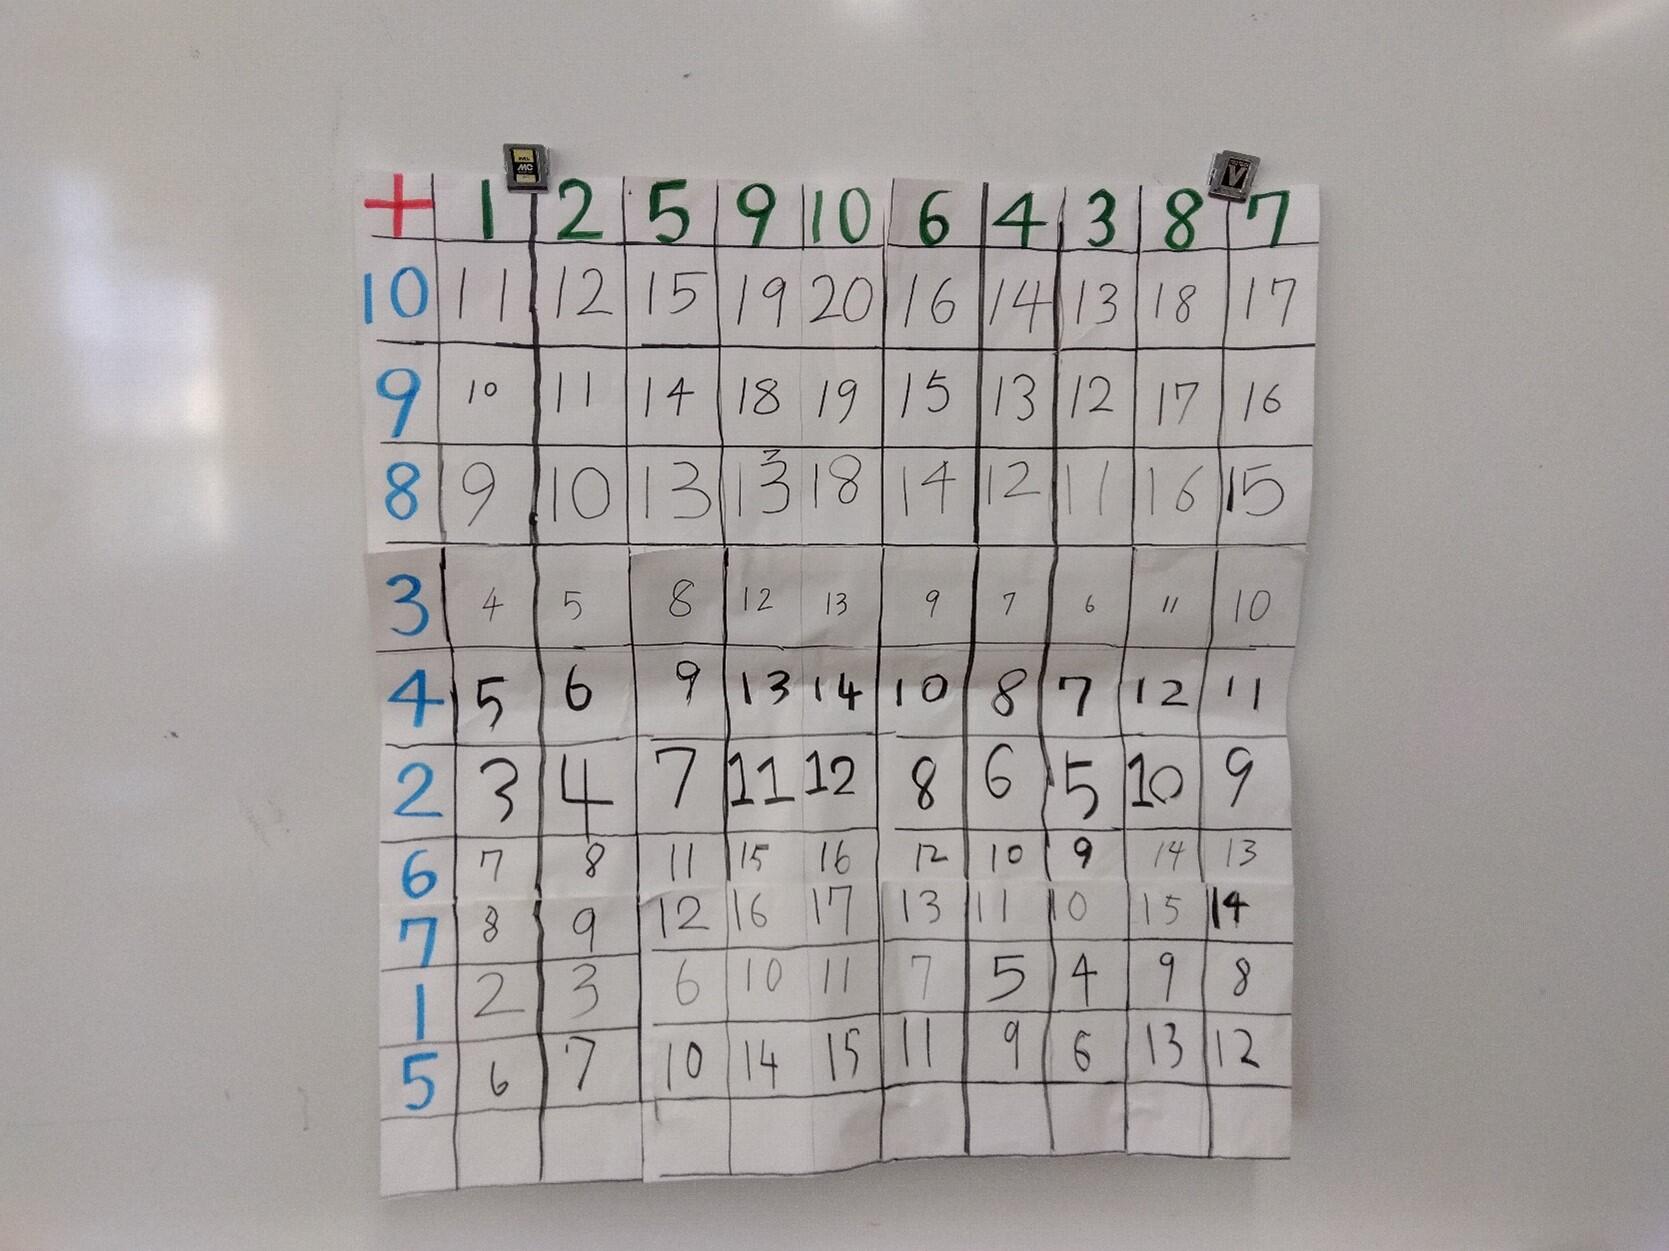 + 1 2 5 9 10 6 4 3 8 7
10 11 12 15 19 20 16 14 13 18 17
9 10 11 14 18 19 15 13 12 17 16
8 9 10 13 13 18 14 12 11 16 15
3 4 5 8 12 13 9 7 6 11 10
4 5 6 9 13 14 10 8 7 12 11
2 3 4 7 11 12 8 6 5 10 9
6 7 8 11 15 16 12 10 9 14 13
7 8 9 12 16 17 13 11 10 15 14
1 2 3 6 10 11 7 5 4 9 8
5 6 7 10 14 15 11 9 6 13 12